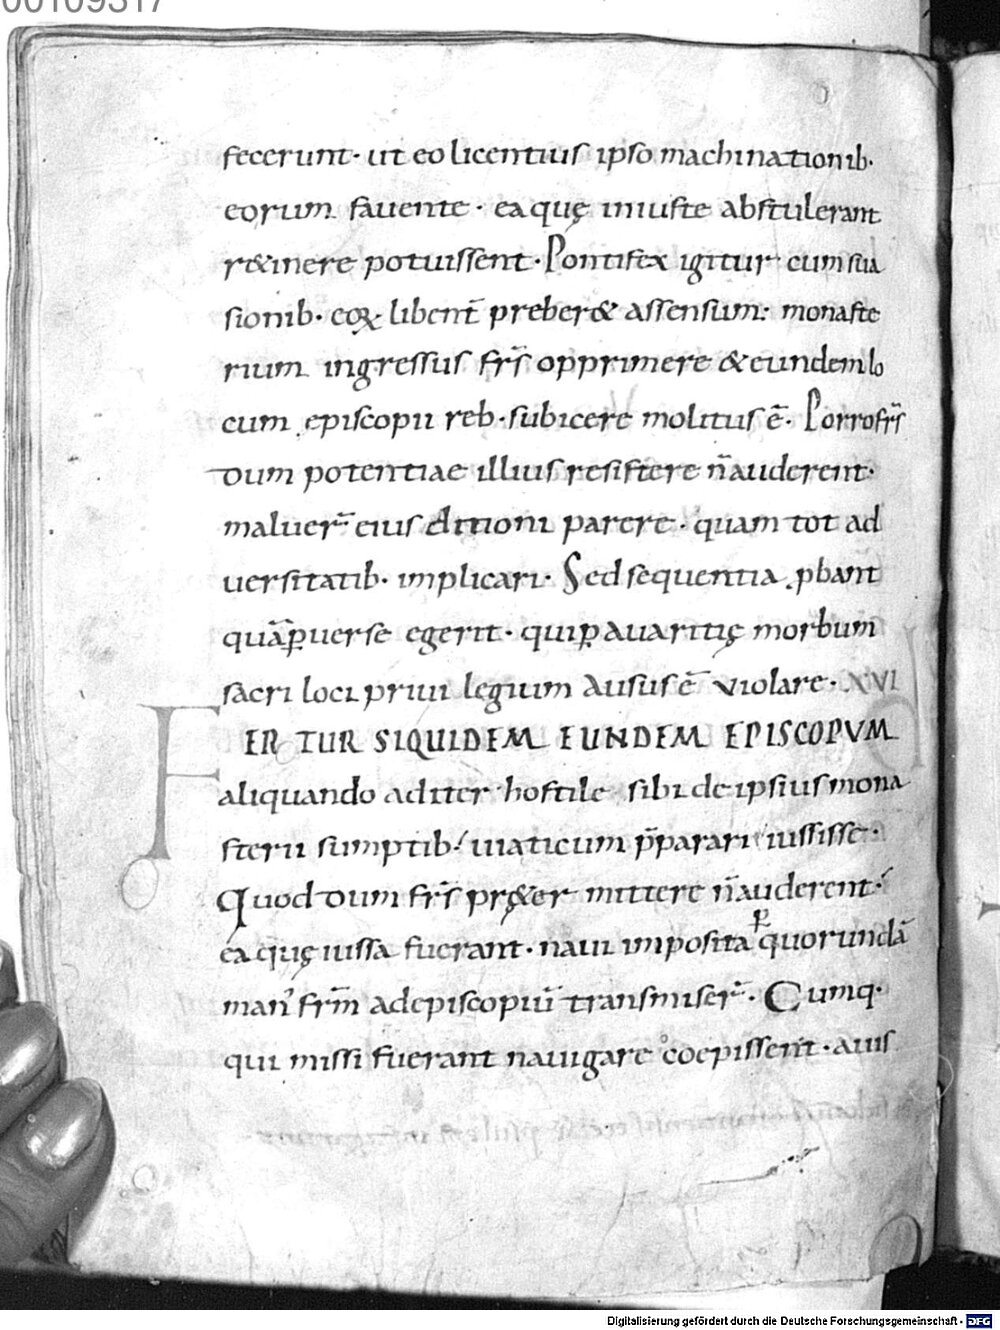 00109317
fecerunt· ut eo licentius ipso machinationib·
eorum fauente· ea quę iniuste abstulerant
r&inere potuissent· Pontifex igitur cum sua
sionib· eoꝝ libent̄ preber& assensum: monaste
rium ingressus fr̄s opprimere & eundem lo
cum episcopii reb· subicere molitus ē· Porro fr̄s
dum potentiae illius resistere n̄ auderent·
maluer̄ eius ditioni parere· quam tot ad
uersitatib· implicari· Sed sequentia ꝓbant
quā ꝑuerse egerit· qui ꝑ auaritię morbum
sacri loci priui legium ausus ē violare· XVI
FER TUR SIQUIDEM EUNDEM EPISCOPVM
aliquando ad iter hostile sibi de ipsius mona
sterii sumptib· uiaticum p̄parari iussisse·
Quod dum fr̄s pr&er mittere n̄ auderent·
ea quę iussa fuerant· naui imposita ꝑ quorundā
man' fr̄m ad episcopiū transmiser̄· Cumq·
qui missi fuerant nauigare coepissent· auis
Digitalisierung gefördert durch die Deutsche Forschungsgemeinschaft - DFG